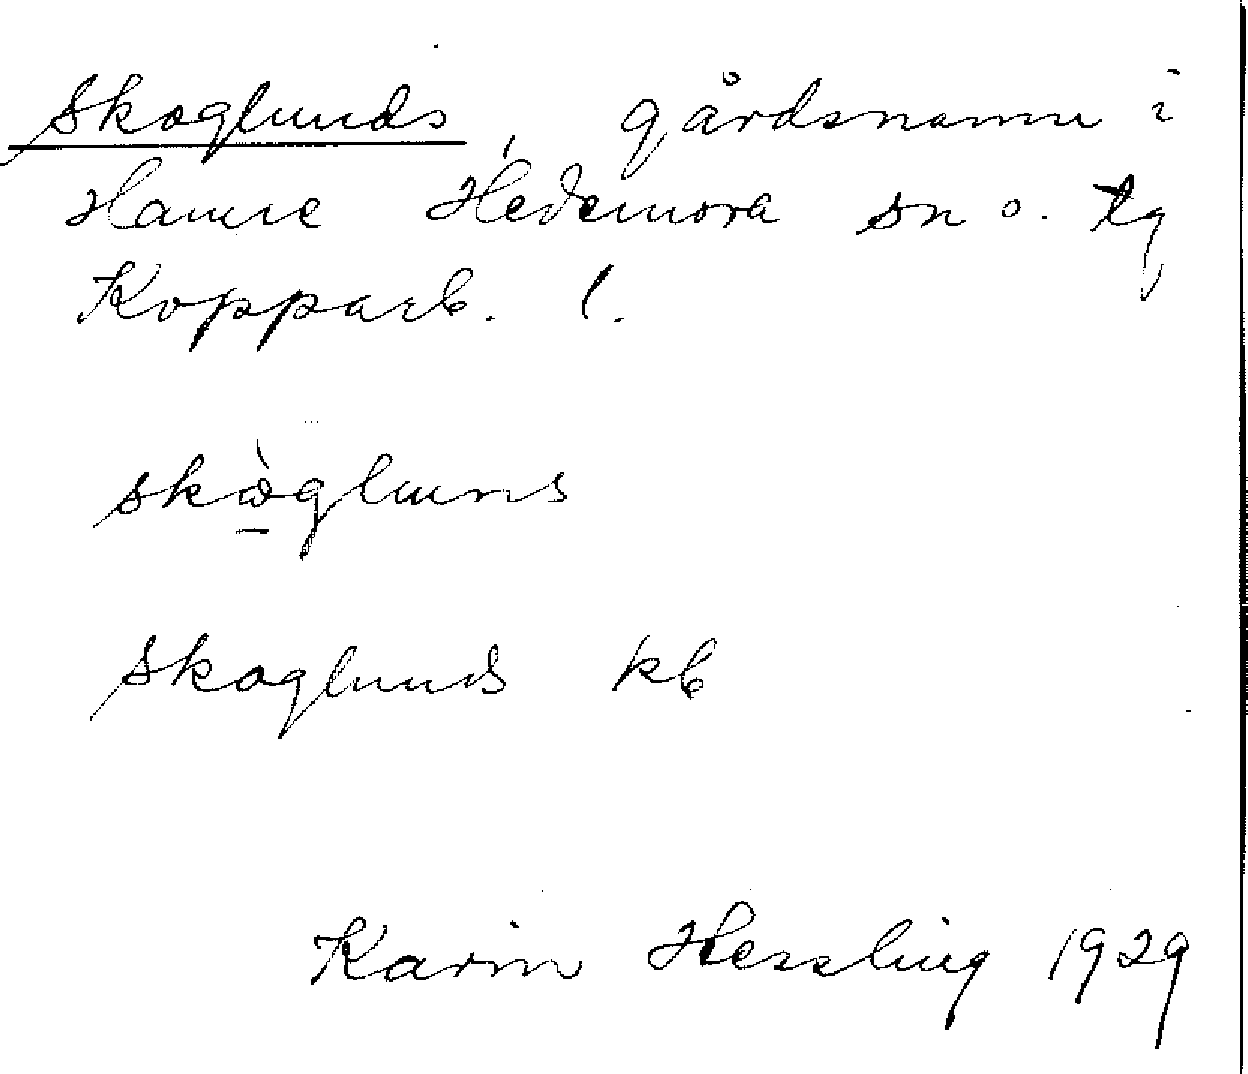 Skoglunds, gårdsnamn i
Hamre Hedemora sn o. tg
Kopparb. l.
skògluns
Skoglunds kb
Karin Hessling 1929